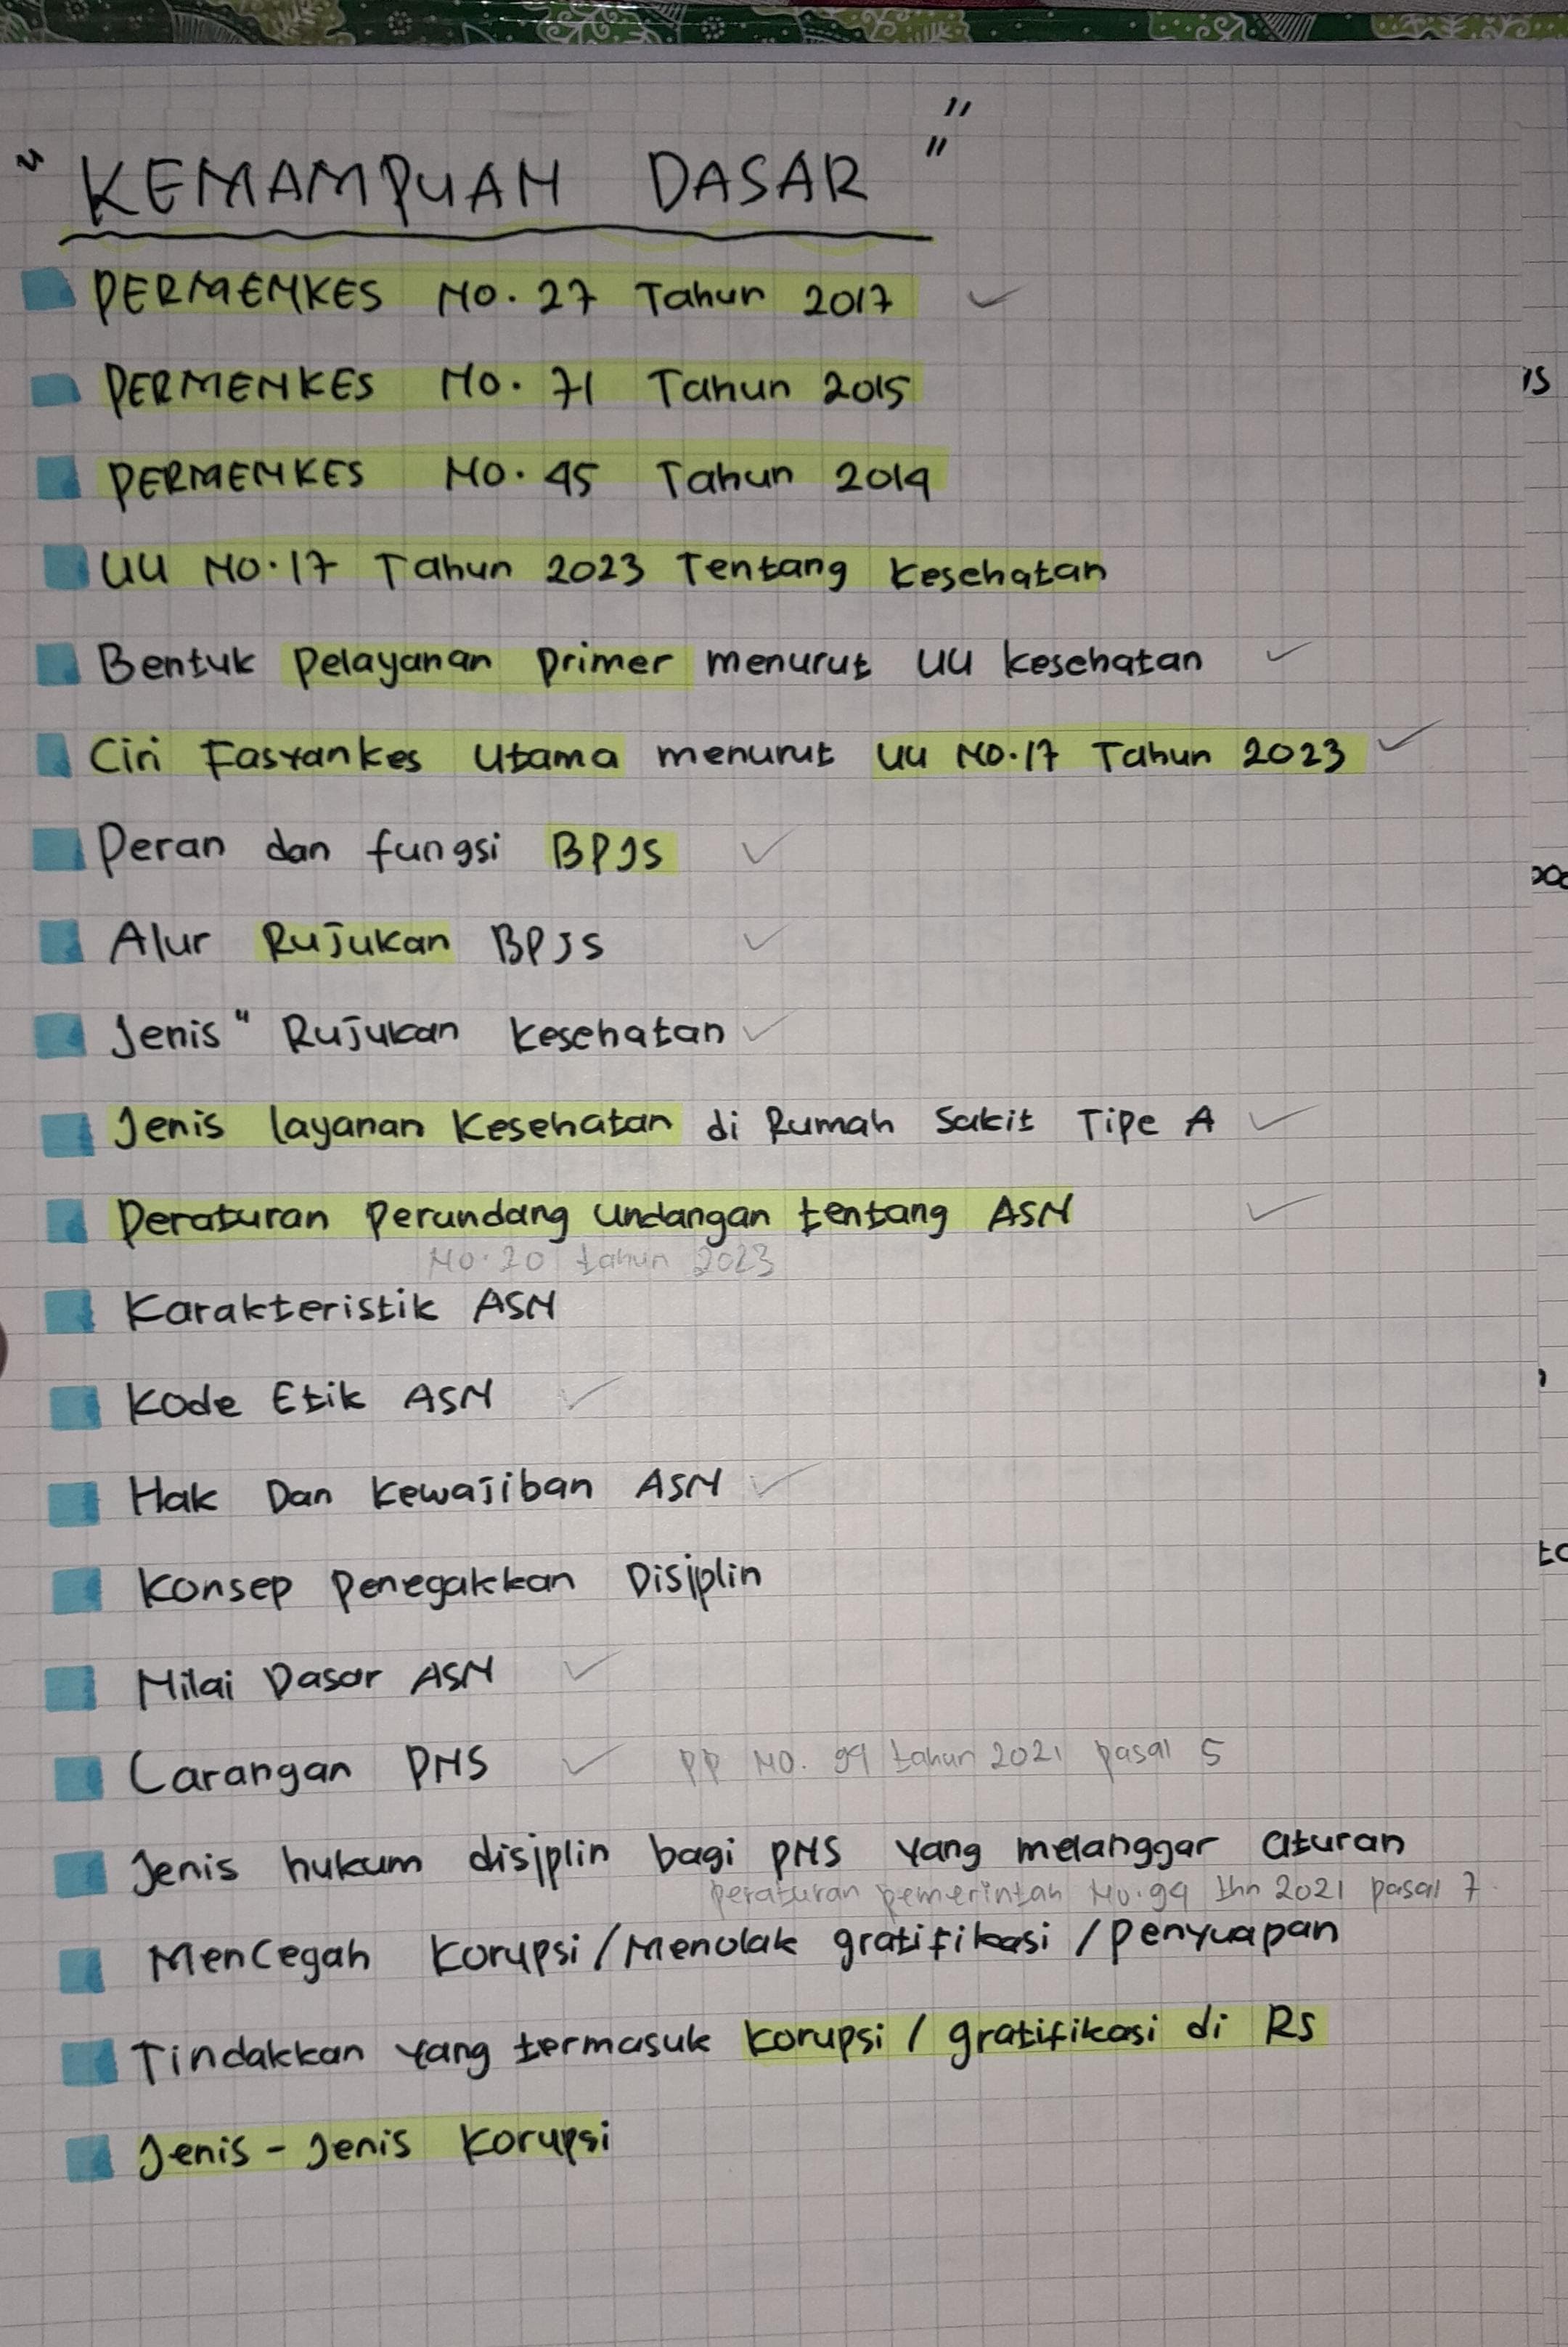 "KEMAMPUAN DASAR"
PERMENKES NO. 27 Tahun 2017
PERMENKES NO. 71 Tahun 2015
PERMENKES NO. 45 Tahun 2014
UU NO.17 Tahun 2023 Tentang Kesehatan
Bentuk Pelayanan primer menurut UU Kesehatan
Ciri Fasyankes Utama menurut UU NO.17 Tahun 2023
Peran dan fungsi BPJS
Alur Rujukan BPJS
Jenis" Rujukan Kesehatan
Jenis layanan Kesehatan di Rumah Sakit Tipe A
Peraturan Perundang Undangan tentang ASN
NO.20 tahun 2023
Karakteristik ASN
Kode Etik ASN
Hak Dan Kewajiban ASN
Konsep Penegakkan Disiplin
Nilai Dasar ASN
Larangan PNS PP NO. 94 tahun 2021 pasal 5
Jenis hukum disiplin bagi PNS yang melanggar aturan
peraturan pemerintah No.94 thn 2021 pasal 7
Mencegah Korupsi/Menolak gratifikasi/penyuapan
Tindakkan yang termasuk korupsi/gratifikasi di RS
Jenis-Jenis Korupsi